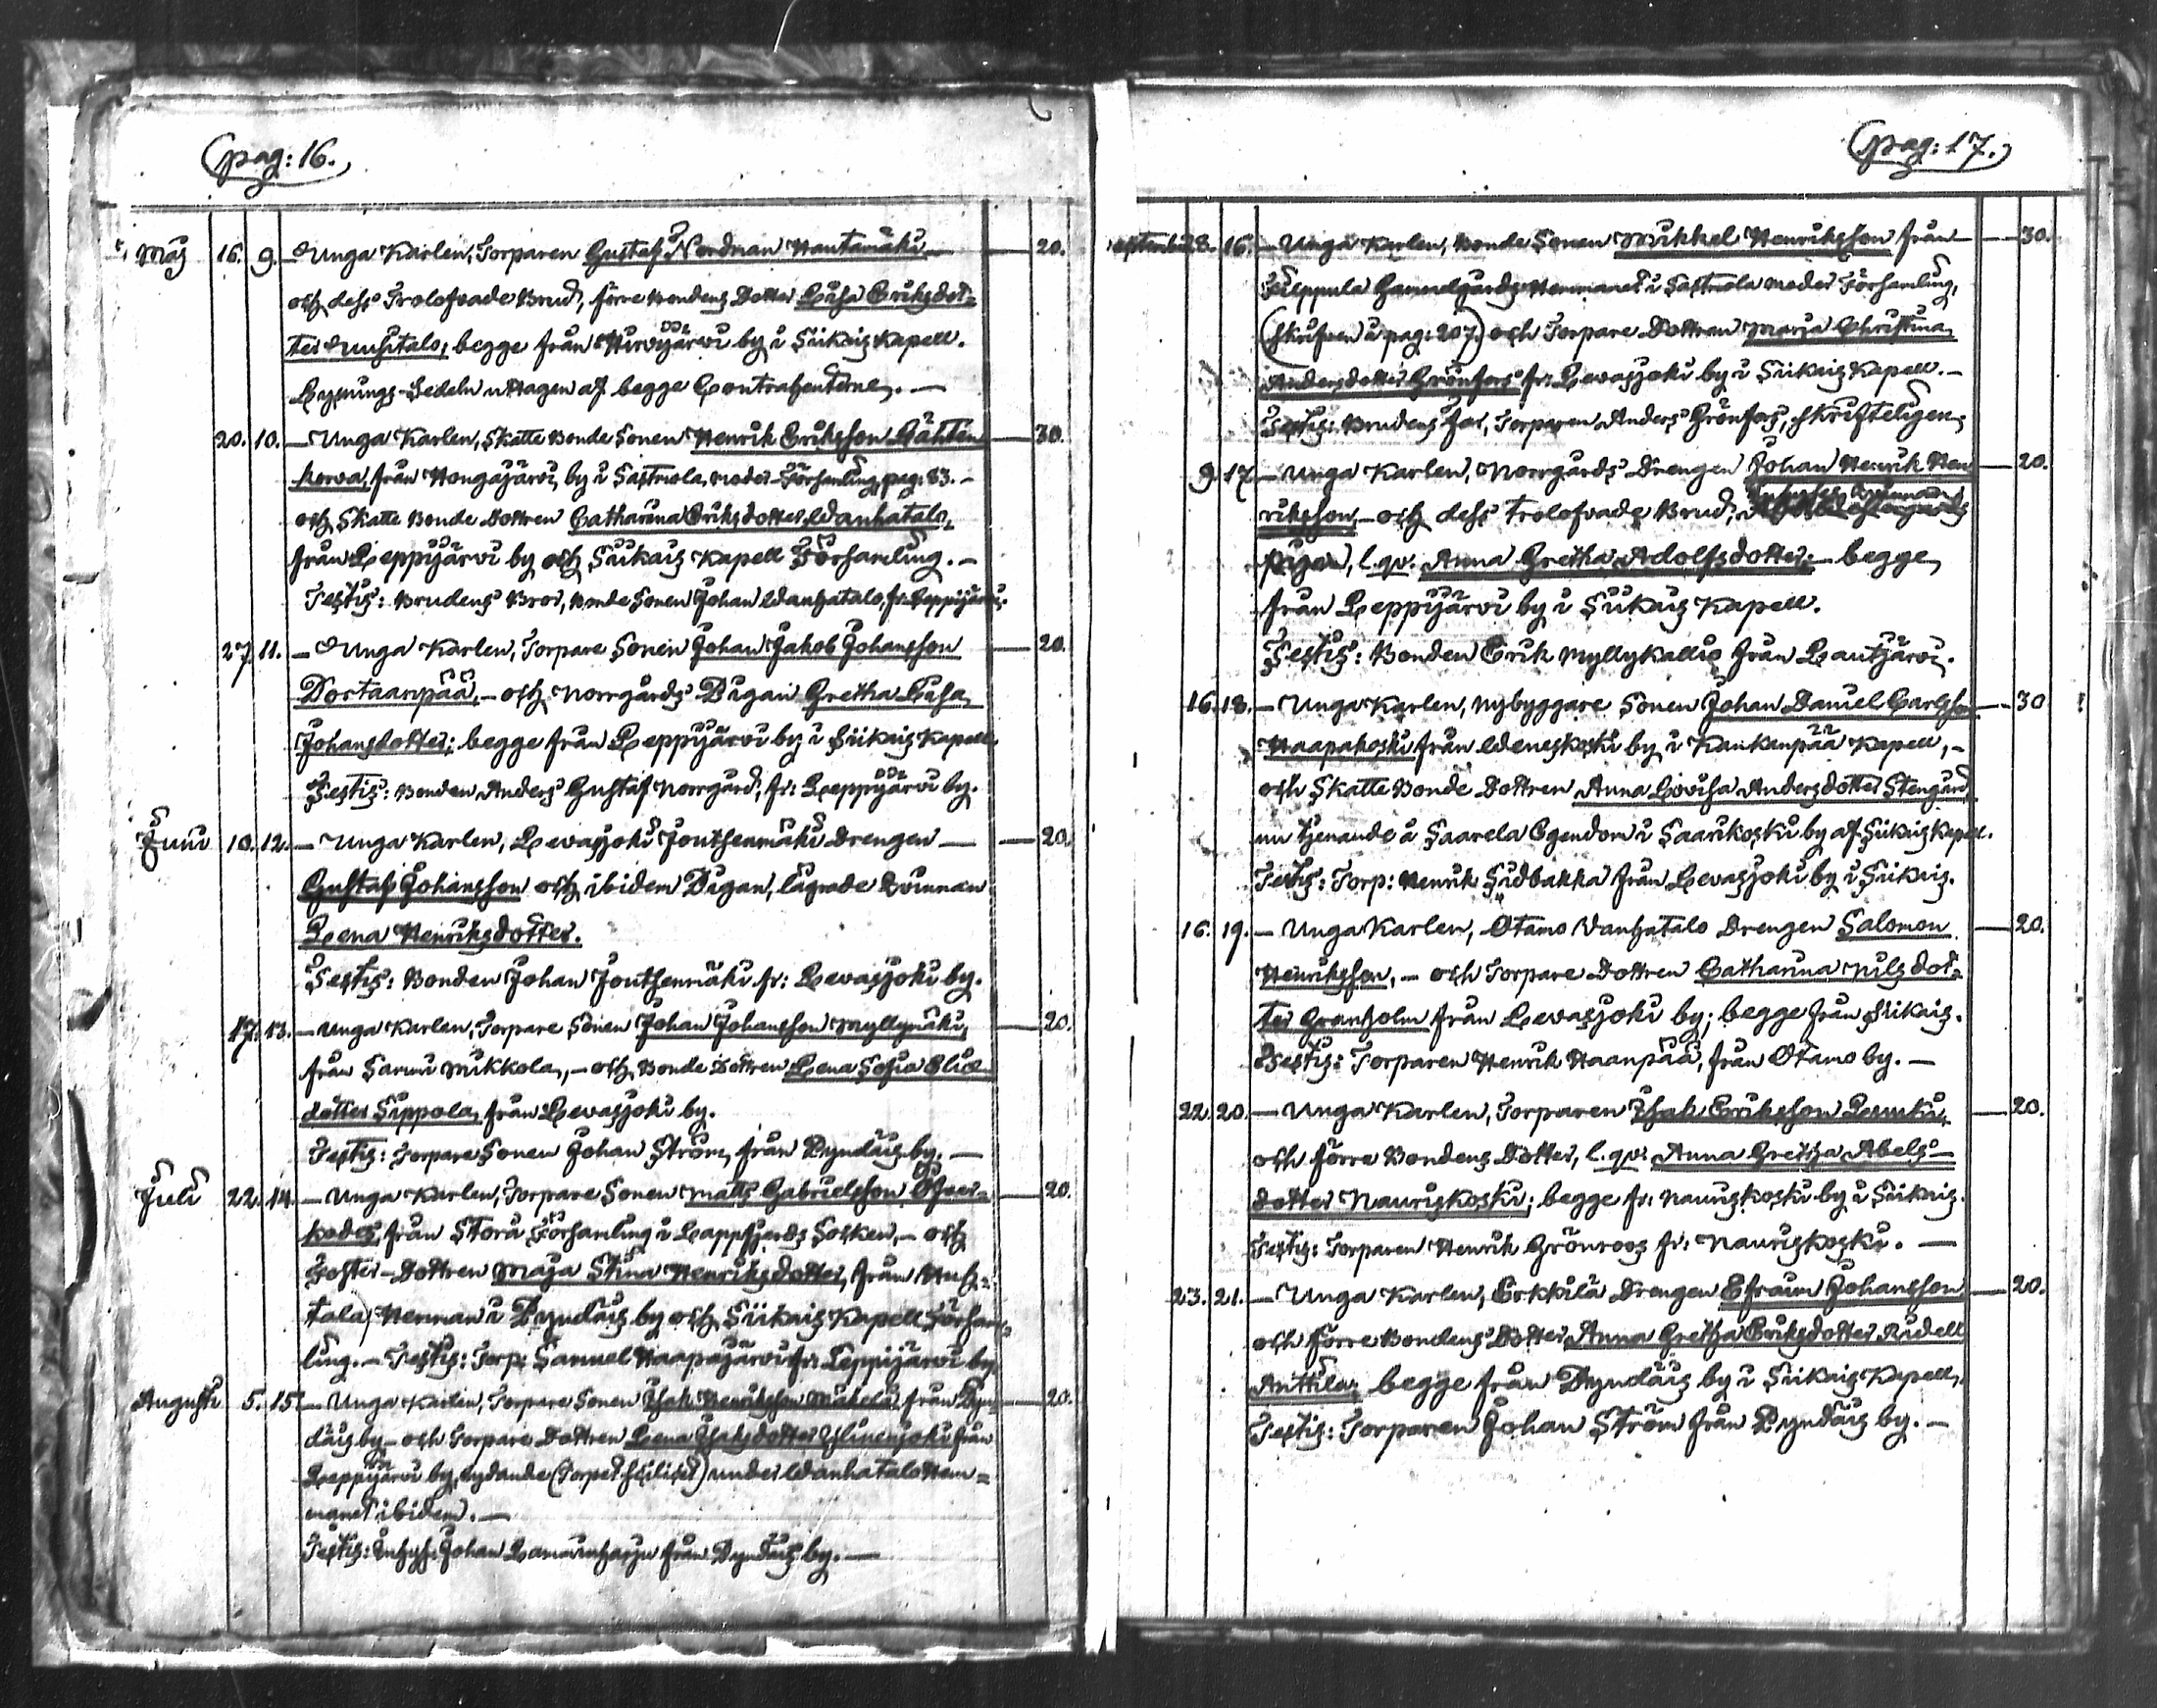 (pag: 16.)
Maj 16. 9. — Unga Karlen, Torparen Gustaf Nordman Hautamäki — 20.
och dess Trolofvade Brud, förre Bondens Dotter Lisa Eriksdot=
ter Uusitalo, begge från Hirvijärvi by i Siikais Kapell.
Lysnings-Sedeln uttagen af begge Contrahenterne. —
20. 10. — Unga Karlen, Skatte Bonde Sonen Henrik Eriksson Lähten — 30.
korva, från Hongajärvi, by i Sastmola moder Församling, pag: 83. —
och Skatte Bonde Dottren Catharina Eriksdotter Wanhatalo,
från Leppijärvi by och Siikais Kapell Församling. —
Testis: Brudens Bror, Bonde Sonen Johan Wanhatalo, fr: Leppijärvi.
27. 11. — Unga Karlen, Torpare Sonen Johan Jakob Johansson — 20.
Portaanpää, — och Norrgårds Pigan Gretha Lisa
Johansdotter; begge från Leppijärvi by i Siikais Kapell.
Testis: Bonden Anders Gustaf Norrgård, fr: Leppijärvi by.
Juni 10. 12. — Unga Karlen, Levasjoki Joutsenmäki Drengen — 20.
Gustaf Johansson och ibidem Pigan, lägrade Qvinnan
Lena Henriksdotter.
Testis: Bonden Johan Joutsenmäki fr: Levasjoki by.
17. 13. — Unga Karlen, Torpare Sonen Johan Johansson Myllymäki, — 20.
från Sammi Mikkola, — och Bonde Dottren Lena Sofia Elis
dotter Sippola, från Levasjoki by.
Testis: Torpare Sonen Johan Ström, från Pyndäis by. —
Juli 22. 14. — Unga Karlen, Torpare Sonen Matts Gabrielsson — 20.
från Storå Församling i Lappfjerds Socken, — och
Foster-Dottren Maja Stina Henriksdotter, från
tala Hemman i Pyndäis by och Siikais Kapell Försam
ling. — Testis: Torp: Samuel Haapajärvi fr: Leppijärvi by
Augusti 5. 15. — Unga Karlen, Torpare Sonen Isak Henriksson Mäkelä, från Pyn — 20.
däis by — och Torpare Dottren Lena Isaksdotter Ylinenjoki från
Leppijärvi by, lydande (Torpet scilicet) under Wanhatalo Hem=
manet ibidem. —
Testis: Inhys: Johan från Pyndäis by. —
(pag: 17.)
September 8. 16. — Unga Karlen, Bonde Sonen Mikkel Henriksson från — 30.
Filppula Gammelgårds Hemmanet i Sastmola moder Församling,
(skrifven å pag: 207.) och Torpare Dottren Maria Christina
Andersdotter Grönfors fr: Levasjoki by i Siikais Kapell. —
Testis: Brudens Far, Torparen Anders Grönfors, skrifteligen.
9. 17. — Unga Karlen, Norrgårds Drengen Johan Henrik Hen — 20.
riksson, — och dess Trolofvade Brud,
Pigan, l. qv. Anna Gretha Adolfsdotter; — begge
från Leppijärvi by i Siikais Kapell.
Testis: Bonden Erik Myllykallio från Lautjärvi.
16. 18. — Unga Karlen, Nybyggare Sonen Johan Daniel Carlsson — 30
Haapakoski från Weneskoski by i Kankanpää Kapell, —
och Skatte Bonde Dottren Anna Lovisa Andersdotter Stengård,
nu tjenande å Saarela Egendom i Saarikoski by af Siikais Kapell.
Testis: Torp: Henrik Sidbakka från Levasjoki by i Siikais.
16. 19. — Unga Karlen, Otamo Vanhatalo Drengen Salomon — 20.
Henriksson, — och Torpare Dottren Catharina Nilsdot=
ter Granholm från Levasjoki by; begge från Siikais.
Testis: Torparen Henrik Haanpää, från Otamo by. —
22. 20. — Unga Karlen, Torparen Isak Eriksson — 20.
och förre Bondens Dotter, l. qv. Anna Gretha Abels=
dotter Nauriskoski; begge fr: Nauriskoski by i Siikais.
Testis: Torparen Henrik Grönroos fr: Nauriskoski. —
23. 21. — Unga Karlen, Erkkilä Drengen Efraim Johansson — 20.
och förre Bondens Dotter Anna Gretha Eriksdotter Ridell
Anttila; begge från Pyndäis by i Siikais Kapell,
Testis: Torparen Johan Ström från Pyndäis by. —